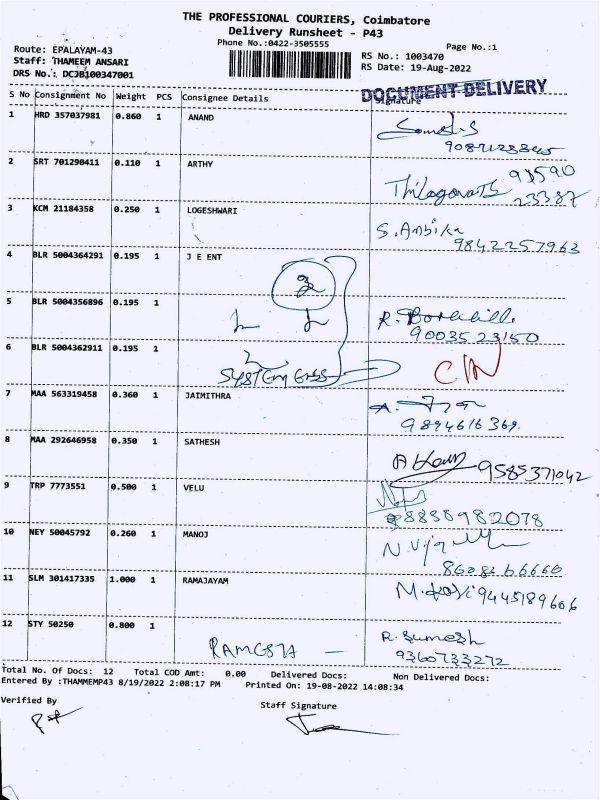 THE PROFESSIONAL COURIERS, Coimbatore
Delivery Runsheet - P43
Phone No.:0422-3505555
Page No.:1
Route: EPALAYAM-43
RS No.: 1003470
Staff: THAMEEM ANSARI
RS Date: 19-Aug-2022
DRS No.: DCJB100347001
DOCUMENT DELIVERY
S No Consignment No Weight PCS Consignee Details Signature
1 HRD 357037981 0.860 1 ANAND
2 SRT 701290411 0.110 1 ARTHY
23387
3 KCM 21184358 0.250 1 LOGESHWARI S. Ambika
9842257963
4 BLR 5004364291 0.195 1 J E ENT
5 BLR 5004356896 0.195 1 R.
9003523150
6 BLR 5004362911 0.195 1
7 MAA 563319458 0.360 1 JAIMITHRA
9894616369.
8 MAA 292646958 0.350 1 SATHESH
9585371042
9 TRP 7773551 0.500 1 VELU
8838982078
10 NEY 50045792 0.260 1 MANOJ
11 SLM 301417335 1.000 1 RAMAJAYAM 9445189606
12 STY 50250 0.800 1 R. Sumesh
9360733272
Total No. Of Docs: 12 Total COD Amt: 0.00 Delivered Docs: Non Delivered Docs:
Entered By :THAMMEMP43 8/19/2022 2:08:17 PM Printed On: 19-08-2022 14:08:34
Verified By
Staff Signature